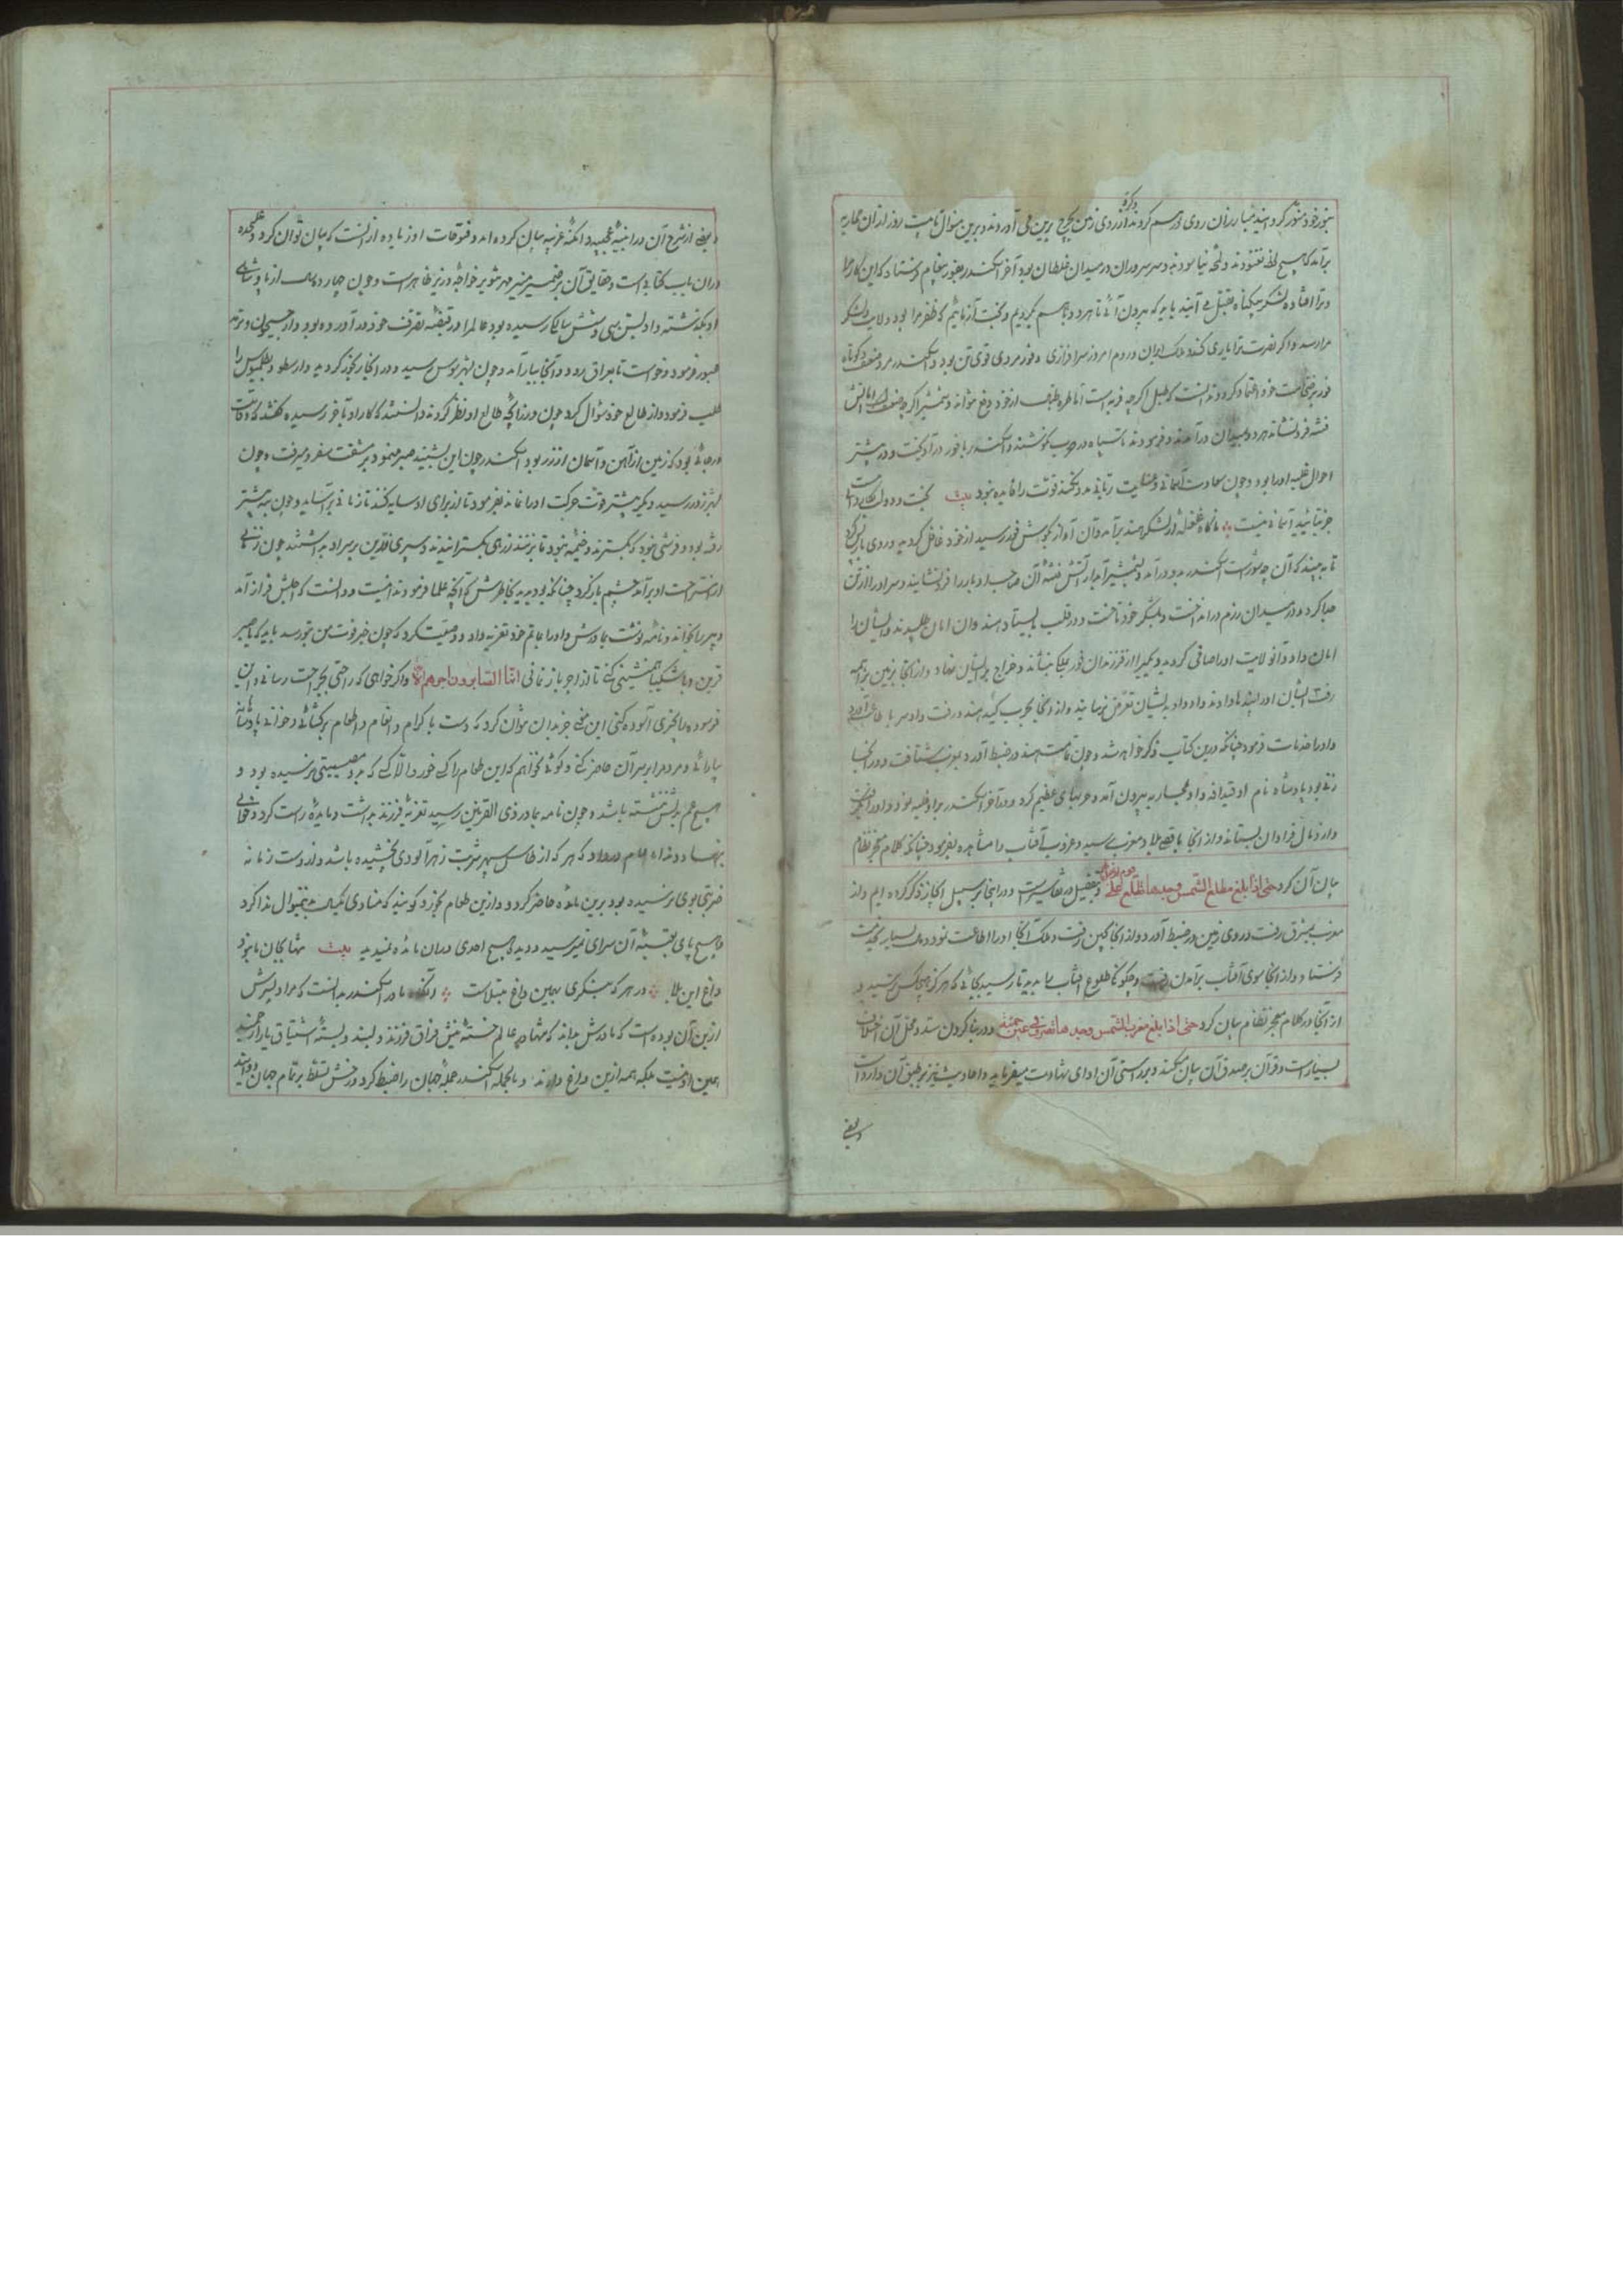 بنور خود منور کرد هند مبارزان روی در هم کردند از روی زمین بچرخ برین می آوردند و برین منوال تا بیست روز از آن محاربه
برآمد که هیچ لحظه نغنودند و لمحه نیاسودند و سر سروران در میدان غلطان بود آخر اسکندر بفور پیغام فرستاد که این کار مرا
و ترا افتاده لشکر بیکناه بقتل می آیند باید که بیرون آئی تا هر دو باهم بگردیم و بخت آزمائیم که ظفر مرا بود ولایت و لشکر
مرا رسد و اگر نصرت ترا یاری کند ملک ایران و روم امروز سرافرازی و فور مردی قوی تن بود و اسکندر مرد ضعیف کوتاه
فور بر ضخامت خود اعتماد کرد و ندانست که طبل اگرچه فربه است اما طره طبقه از خود دفع نتواند و شمشیر اگرچه ضعیف است
فتنه فرو نشاند هر دو بمیدان درآمدند و فرمودند تا سپاه در حرب نکوشند و اسکندر با فور درآویخت و در بیشتر
احوال غلبه او را بود و چون سعادت آسمانی و عنایت ربانی مدد نکند قوت را فایده نبود بیت بخت و دولت بکاردانی نیست
جز بتائید آسمانی نیست ناکاه غلغله از لشکر هند برآمد و آن آواز بگوش فور رسید از خود غافل کردید و روی باز پس کرد
تا ببیند که آن چه شورست اسکندر بدو درآمد و بشمشیر آبدار آتش فتنه آن صاحب ادبار را فرو نشانید و سر او را از تن
جدا کرد و در میدان رزم درانداخت و بلشکر خود تاخت و در قلب بایستاد هندوان امان طلبیدند و ایشان را
امان داد و آن ولایت او را صافی کردید و یکی را از فرزندان فور بملک بنشاند و خراج بر ایشان نهاد و از آنجا بزمین براهمه
رفت ایشان او را پندها دادند و او بدیشان تعرض نرسانید و از آنجا بحرب کید هند رفت و او سر باطاعت درآورد
و او را خدمات فرمود چنانکه درین کتاب ذکر خواهد شد و چون تمامت هند در ضبط آورد بمغرب شتافت و در آنجا
زنی بود پادشاه نام او قیدافه و او بمحاربه بیرون آمد و حربهای عظیم کرد و در آخر اسکندر برو غلبه نمود و او را بگرفت
و از و مال فراوان بستاند و از آنجا باقصی بلاد مغرب رسید و غروب آفتاب را مشاهده بفرمود چنانکه کلام معجز نظام
بیان آن کرد حتی اذا بلغ مطلع الشمس وجدها تطلع علی قوم و تفصیل در تفاسیرست و در اینجا بر سبیل ایجاز ذکر کرده ایم و از
مغرب بمشرق رفت و روی زمین در ضبط آورد و از آنجا بچین رفت و ملک آنجا او را اطاعت نمود و مال بسیار بخدمت
فرستاد و از آنجا سوی آفتاب برآمدن رفت و چگونگی طلوع آفتاب بدید تا رسید بجائی که هرگز هیچکس نرسید و
از آنجا در کلام معجز نظام بیان کرد حتی اذا بلغ مغرب الشمس وجدها تغرب فی عین حمئة و در بنا کردن سد و محل آن اختلاف
بسیارست و قرآن بر صدق آن بیان میکند و بر راستی آن ادای شهادت میفرماید و احادیث نیز بر طبق آن وارد است
و بعضی
و بعضی از شرح آن در ابنیه عجیبه و امکنه غریبه بیان کرده اند و فتوحات او زیاده از آنست که بیان توان کرد و علیحده
در آن باب کتابیست و حقایق آن بر ضمیر منیر مهر تنویر خواجه وزیر ظاهر است و چون چهارده سال از پادشاهی
او بگذشته و او بسن سی و شش سالگی رسیده بود عالم را در قبضه تصرف خود درآورده بود و از جیحون
عبور فرمود و خواست تا بعراق رود و آنجا بیارآمد و چون بشهر قومس رسید و در آنجا رنجور کردید و ارسطو و بطلمیوس را
طلب فرمود و از طالع خود سؤال کرد چون در زایچه طالع او نظر کردند دانستند که کار او بآخر رسیده گفتند که وفات
در جائی بود که زمین از آهن و آسمان از زر بود اسکندر چون این بشنید صبر مینمود و بر مشقت سفر میرفت و چون
بشهر زور رسید دیگر بیشتر قوت حرکت او را نماند بفرمود تا از برای او سایه کنند تا زمانی برآساید و چون بنه بیشتر
رفته بود و فرشی نبود که بگسترند و خیمه نبود تا بزنند زرهی بگسترانیدند و سپری زرین بر سر او بداشتند چون زمانی
از استراحت او برآمد چشم باز کرد چنانکه بود بدید بخاطرش که آنچه علما فرمودند اینست و دانست که اجلش فراز آمد
دبیر را بخواند و نامه نوشت بمادرش و او را بماتم خود تعزیه داد و وصیت کرد که چون خبر فوت من بتو رسد باید که با صبر
قرین و با شکیبا همنشینی کنی تا از اجر باز نمانی انما الصابرون اجرهم و اگر خواهی که راحتی بجراحت رسانی و این
فرسوده را بخیری آسوده کنی این معنی جز بدان نتوان کرد که دست باکرام و انعام و اطعام برکشائی و خوانی پادشاهانه
بیارائی و مردم را بر سر آن حاضر کنی و گوئی نخواهم که این طعام را کسی خورد الا کسی که بدو مصیبتی نرسیده بود و
هیچ غم بدلش ننشسته باشد و چون نامه بمادر ذی القرنین رسید تعزیه فرزند بداشت و مایده راست کرد و خوانی
بنهاد و ندا عام درداد که هر که از طاس سپهر شربت زهرآلودی نچشیده باشد و از دست زمانه
ضربتی بوی نرسیده بود برین مائده حاضر گردد و ازین طعام بخورد گویند که منادی بدین منوال ندا کرد
و هیچ پای بعتبه آن سرای نمیرسید و دید هیچ احدی در آن مائده نمیدید بیت نه تنها بجان ما بود
داغ این بلا در هر که بنگری بهمین داغ مبتلاست و آنکه مادر اسکندر بدانست که مراد پسرش
ازین آن بوده است که مادرش بداند که تنها در عالم خسته نیش فراق فرزند دلبند و بسته اشتیاق یار ارجمند
همین او نیست بلکه همه ازین داغ دارند و بالجمله اسکندر جمله جهان را ضبط کرد و رخش تسلط بر تمام جهان دوانید